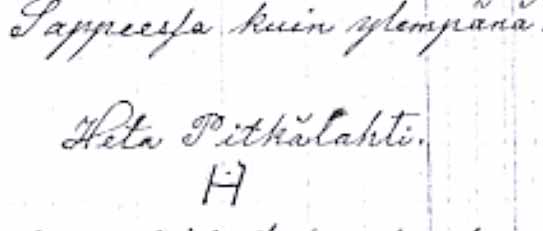 Sappeessa kuin ylempänä.
Heta Pitkälahti.
H